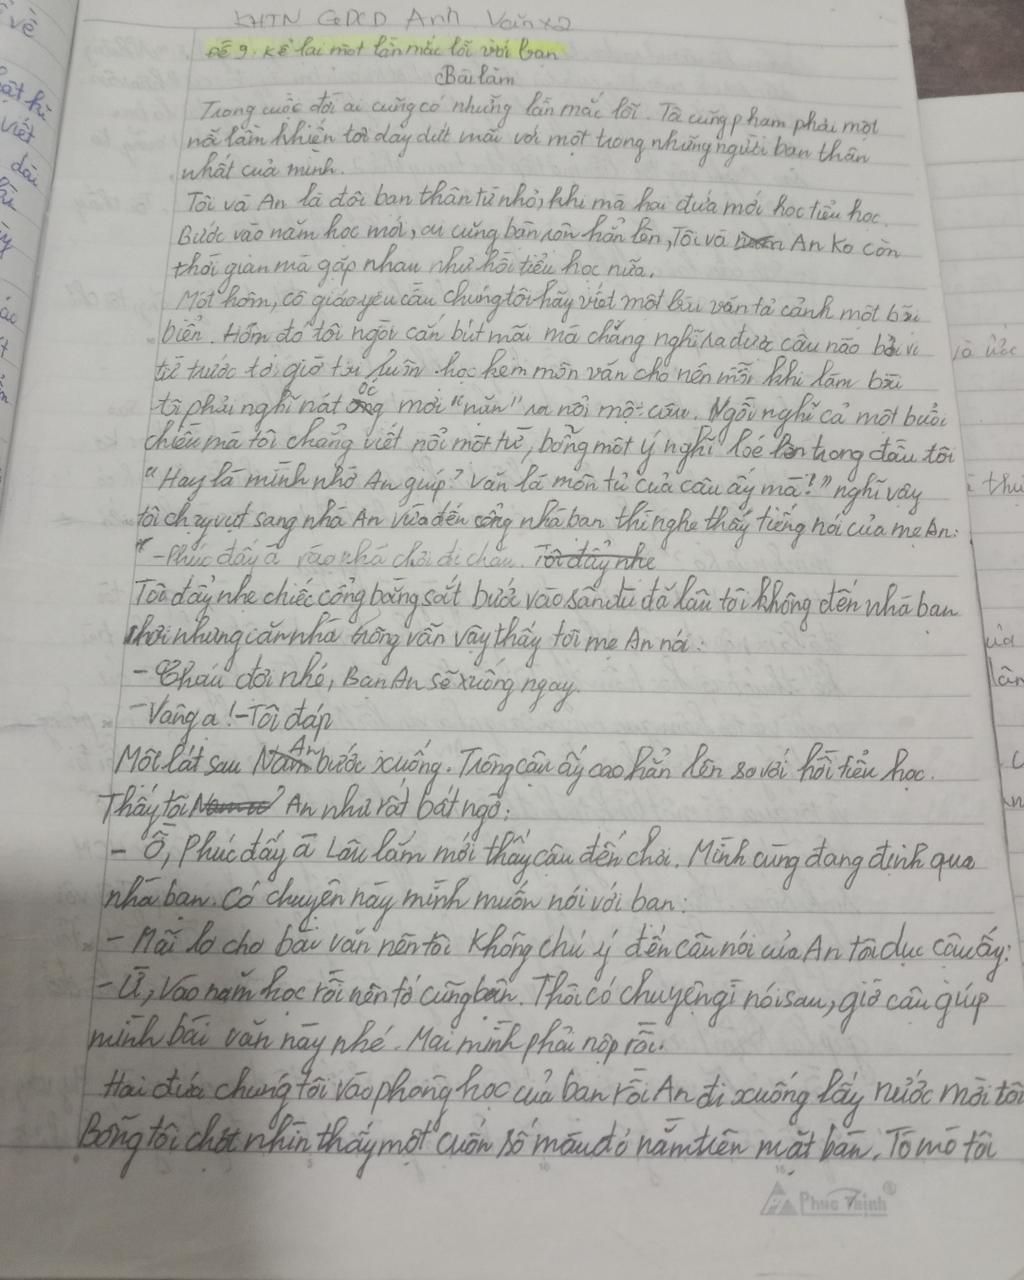 KHTN GDCD Anh Văn x2
Đề 9. Kể lại một lần mắc lỗi với bạn
Bài làm
Trong cuộc đời ai cũng có những lần mắc lỗi. Tôi cũng phạm phải một
nỗi lầm khiến tôi day dứt mãi với một trong những người bạn thân
nhất của mình.
Tôi và An là đôi bạn thân từ nhỏ, khi mà hai đứa mới học tiểu học.
Bước vào năm học mới, ai cũng bận rộn hẳn lên, Tôi và An ko còn
thời gian mà gặp nhau như hồi tiểu học nữa.
Một hôm, cô giáo yêu cầu chúng tôi hãy viết một bài văn tả cảnh một bãi
biển. Hôm đó tôi ngồi cắn bút mãi mà chẳng nghĩ ra được câu nào bởi vì
từ trước tới giờ tôi luôn học kém môn văn cho nên mỗi khi làm bài
tôi phải nghĩ nát óc mới "nặn" ra nổi một câu. Ngồi nghĩ cả một buổi
chiều mà tôi chẳng viết nổi một từ, bỗng một ý nghĩ loé lên trong đầu tôi
"Hay là mình nhờ An giúp? Văn là môn tủ của cậu ấy mà!" nghĩ vậy
tôi chạy vụt sang nhà An vừa đến cổng nhà bạn thì nghe thấy tiếng nói của mẹ An:
"-Phúc đấy à vào nhà chơi đi cháu. Tôi đẩy nhẹ
Tôi đẩy nhẹ chiếc cổng bằng sắt bước vào sân dù đã lâu tôi không đến nhà bạn
chơi nhưng căn nhà trông vẫn vậy thấy tôi mẹ An nói:
- Cháu đợi nhé, Bạn An sẽ xuống ngay.
- Vâng ạ! - Tôi đáp
Một lát sau An bước xuống. Trông cậu ấy cao hẳn lên so với hồi tiểu học.
Thấy tôi An như rất bất ngờ:
- Ồ, Phúc đấy à Lâu lắm mới thấy cậu đến chơi. Mình cũng đang định qua
nhà bạn. Có chuyện này mình muốn nói với bạn:
- Mải lo cho bài văn nên tôi không chú ý đến câu nói của An tôi dục cậu ấy:
- Ừ, Vào năm học rồi nên tớ cũng bận. Thôi có chuyện gì nói sau, giờ cậu giúp
mình bài văn này nhé. Mai mình phải nộp rồi.
Hai đứa chúng tôi vào phòng học của bạn rồi An đi xuống lấy nước mời tôi
Bỗng tôi chợt nhìn thấy một cuốn sổ màu đỏ nằm trên mặt bàn. Tò mò tôi
Phuc Thinh